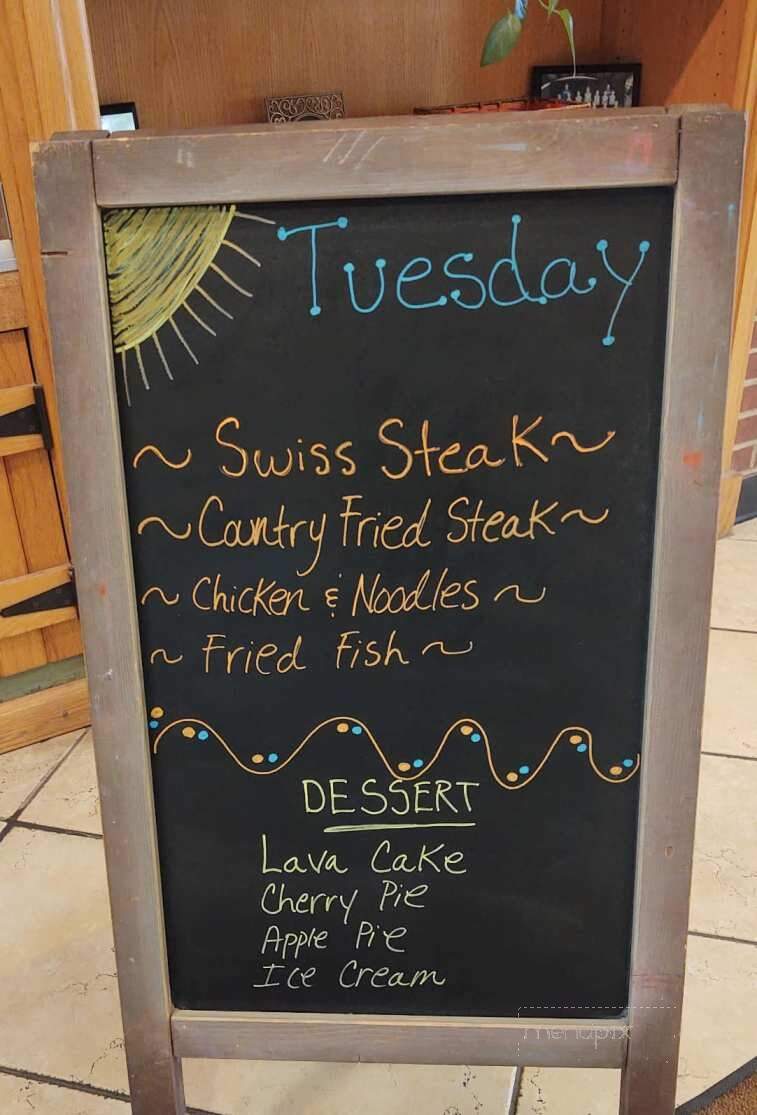 Tuesday
~ Swiss Steak ~
~ Country Fried Steak ~
~ Chicken & Noodles ~
~ Fried Fish ~
DESSERT
Lava Cake
Cherry Pie
Apple Pie
Ice Cream
menupix